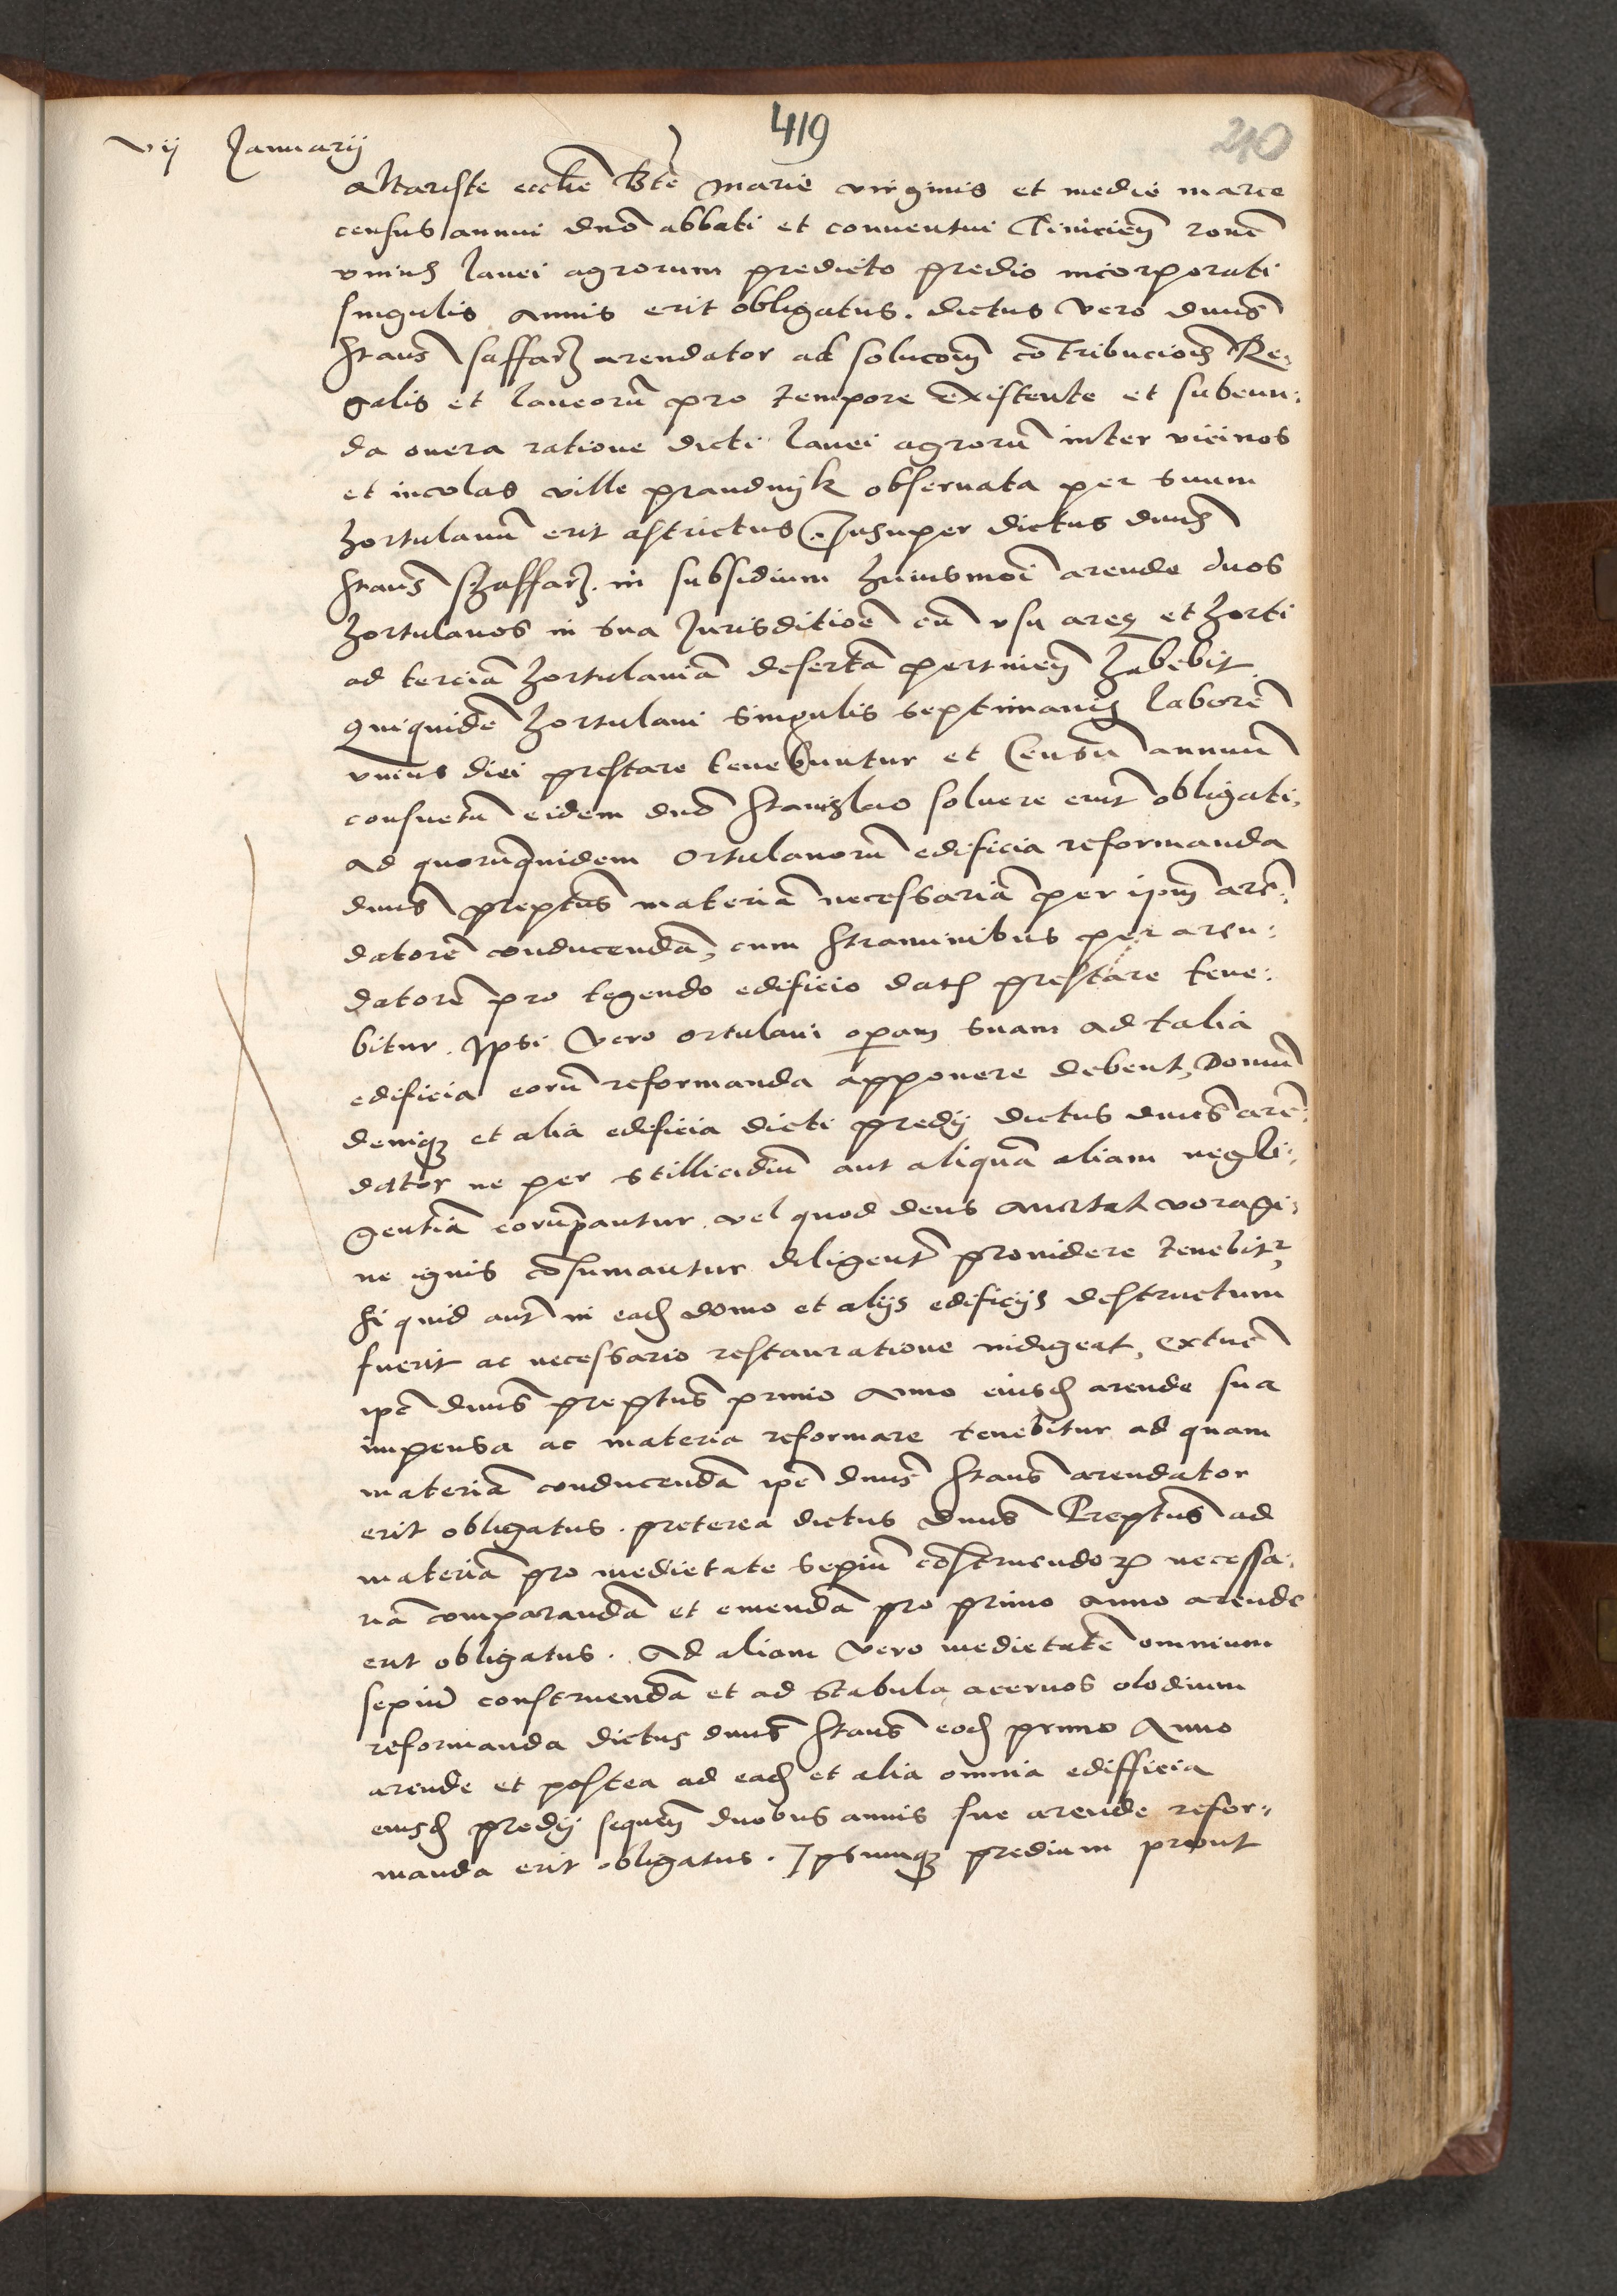 419
210
vij Januarij
altariste ecclie Bte marie virginis et medie marce
census annui dno abbati et conuentui Tinicien rone
vnius lanei agrorum predicto predio incorporati
singulis annis erit obligatus. dictus vero dnus
Staus saffarz arendator ad solucom contribucionis Re-
galis et laneorū pro tempore existente et subeun:
da onera ratione dicti lanei agrorū inter vicinos
et incolas ville prandnijk obseruata per suum
hortulanū erit astrictus. Insuper dictus dnus
Staus Szaffarz. in subsidium huiusmoi arende duos
hortulanos in sua Jurisditioe cū vsu aree et horti
ad terciā hortulaniā desertā pertinen habebit
quiquidē hortulani singulis septimanis laborē
vnius diei prestare tenebuntur et Censū annuū
consuetū eidem dno Stanislao soluere erūt obligati,
ad quorūquidem ortulanorū edificia reformanda
dnus preptus materiā necessariā per ipm arē:
datorē conducendā, cum straminibus per aren:
datorē pro tegendo edificio datis prestare tene:
bitur. Ipsi vero ortulani operam suam ad talia
edificia eorū reformanda apponere debent, Domū
denique et alia edificia dicti predij dictus dnus arē:
dator ne per stillicidiū aut aliquā aliam negli:
gentiā corrūpantur. vel quod deus auertat voragi:
ne ignis cōsumantur diligentr prouidere tenebitr,
si quid autē in eadē domo et alijs edificijs destructum
fuerit ac necessario restauratione indigeat, extunc
ipe dnus preptus primo anno eiusdē arende sua
impensa ac materia reformare tenebitur ad quam
materiā conducendā ipe dnus Staus arendator
erit obligatus. preterea dictus dnus Preptus ad
materiā pro medietate sepiū cōstruendorum necessa:
riā comparandā et emendā pro primo anno arende
erit obligatus. Ad aliam vero medietatē omnium
sepiū construendā et ad stabula acernos olodium
reformanda dictus dnus Staus eodē primo Anno
arende et postea ad eadē et alia omnia edifficia
eiusdē predij sequen duobus annis sue arende refor:
manda erit obligatus. Ipsumque predium prout